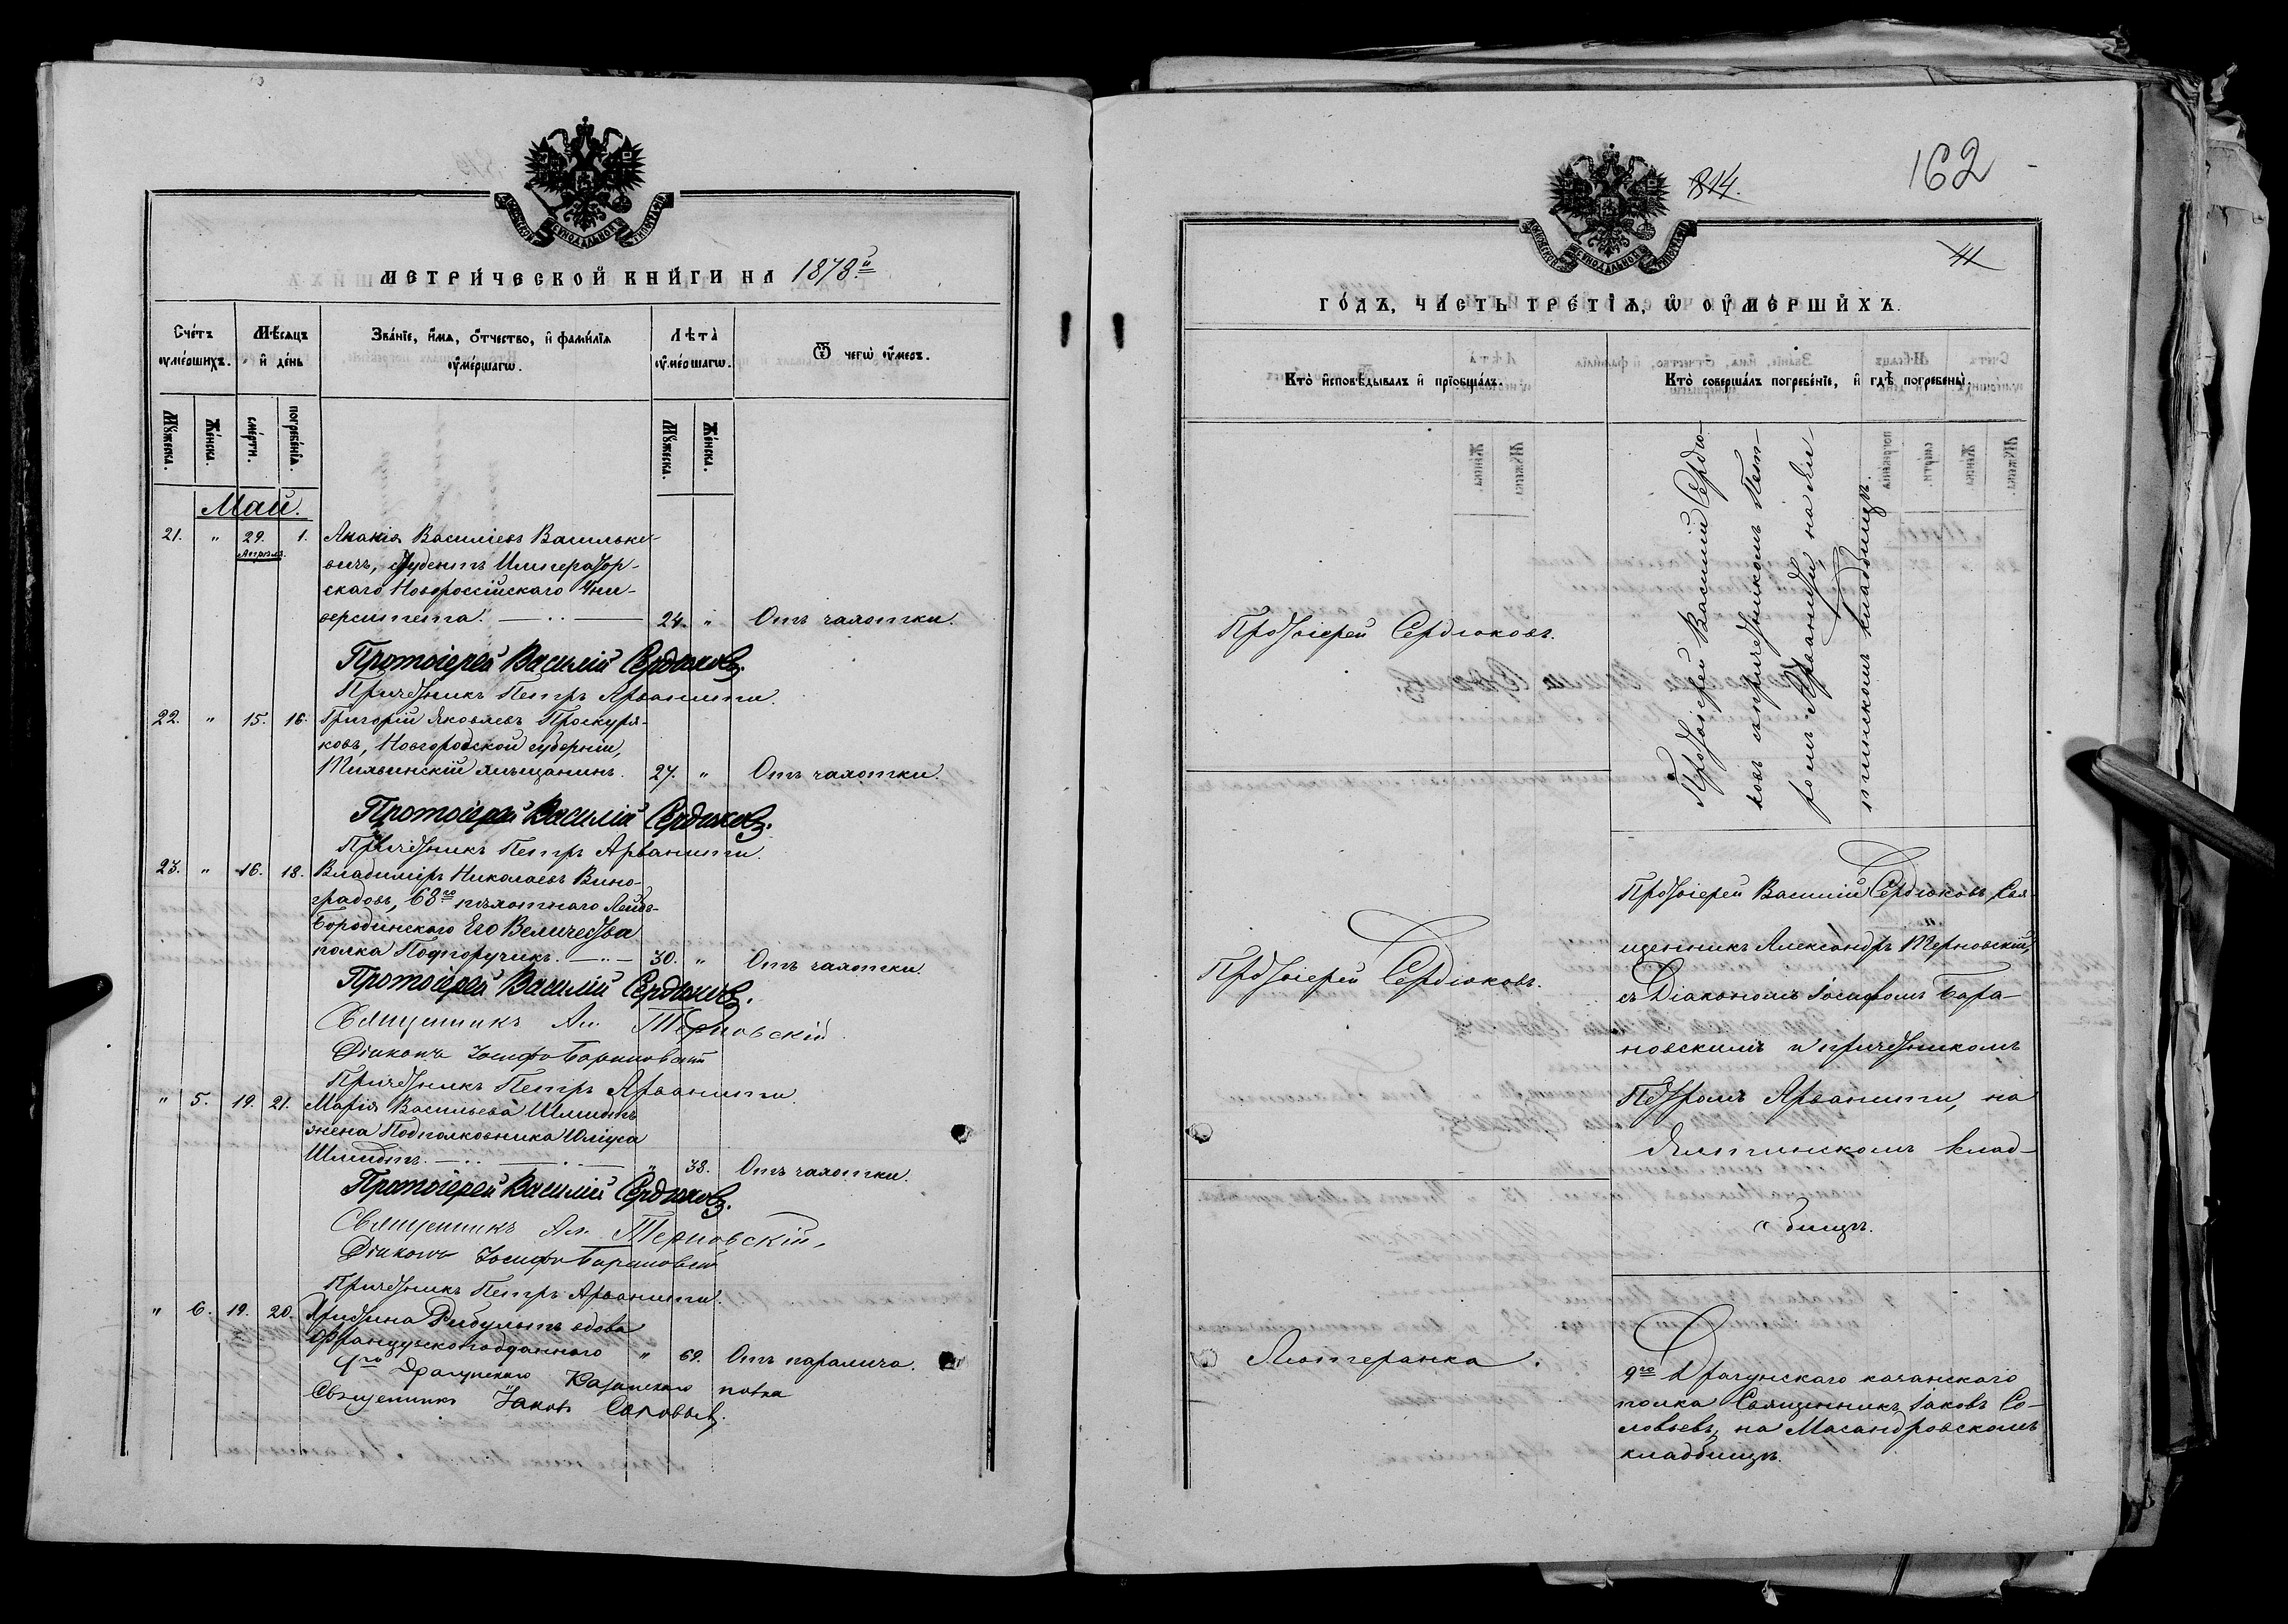 МОСКОВСКОЙ СѴНОДАЛЬНОЙ ТИПОГРАФІИ
МЕТРИ́ЧЕСКОЙ КНИ́ГИ НА 1878й
Сче́тъ ᲂу҆ме́ршихъ.
Мѣ́сяцъ и҆ де́нь
Зва́нїе, и҆́мя, ѻ҆́тчество, и҆ фами́лїя ᲂу҆ме́ршагѡ.
Лѣ́та ᲂу҆ме́ршагѡ.
Ѿ чегѡ̀ ᲂу҆́меръ.
Мꙋ́жеска.
Же́нска.
сме́рти.
погребе́нїя.
Мꙋ́жеска.
Же́нска.
Май.
21. " 29. 1. Ананія Василіевъ Василько-
Апрѣля.
вичъ, студентъ Император-
скаго Новороссійскаго Уни-
верситета. 24. " Отъ чахотки.
Протоіерей Василій Сердюковъ.
Причетникъ Петръ Арванити.
22. " 15. 16. Григорій Яковлевъ Проскуря-
ковъ, Новгородской губерніи,
мѣщанинъ. 27. " Отъ чахотки.
Протоіерей Василій Сердюковъ.
Причетникъ Петръ Арванити.
23. " 16. 18. Владиміръ Николаевъ Вино-
градовъ, 68го пѣхотнаго Лейбъ-
Бородинскаго Его Величества
полка Подпоручикъ. 30. " Отъ чахотки.
Протоіерей Василій Сердюковъ.
Священникъ Ал. Терновскій
Діаконъ Іосифъ Барановскій
Причетникъ Петръ Арванити.
" 5. 19. 21. Марія Васильева Шмидтъ
жена Подполковника Юлія
Шмидтъ. " 38. Отъ чахотки.
Протоіерей Василій Сердюковъ.
Священникъ Ал. Терновскій.
Діаконъ Іосифъ Барановскій
Причетникъ Петръ Арванити.
" 6. 19. 20. вдова
Французскоподданнаго " 69. Отъ паралича.
9го Драгунскаго Казанскаго полка
Священникъ Іаковъ Соловьевъ.
814.
162
41
МОСКОВСКОЙ СѴНОДАЛЬНОЙ ТИПОГРАФІИ
ГО́ДЪ, ЧА́СТЬ ТРЕ́ТІѦ, Ѡ҆ ᲂУ҆МЕ́РШИХЪ.
Кто̀ и҆сповѣ́дывалъ и҆ прїобща́лъ.
Кто̀ соверша́лъ погребе́нїе, и҆ гдѣ̀ погребены̀.
Протоіерей Сердюковъ.
Протоіерей Василій Сердю-
ковъ съ причетникомъ Пет-
ромъ Арванити, на Ял-
тинскомъ кладбищѣ.
Протоіерей Сердюковъ.
Протоіерей Василій Сердюковъ, Свя-
щенникъ Александръ Терновскій,
съ Діакономъ Іосифомъ Бара-
новскимъ и причетникомъ
Петромъ Арванити, на
Ялтинскомъ клад-
бищѣ.
Лютеранка.
9го Драгунскаго казанскаго
полка Священникъ Іаковъ Со-
ловьевъ, на Масандровскомъ
кладбищѣ.